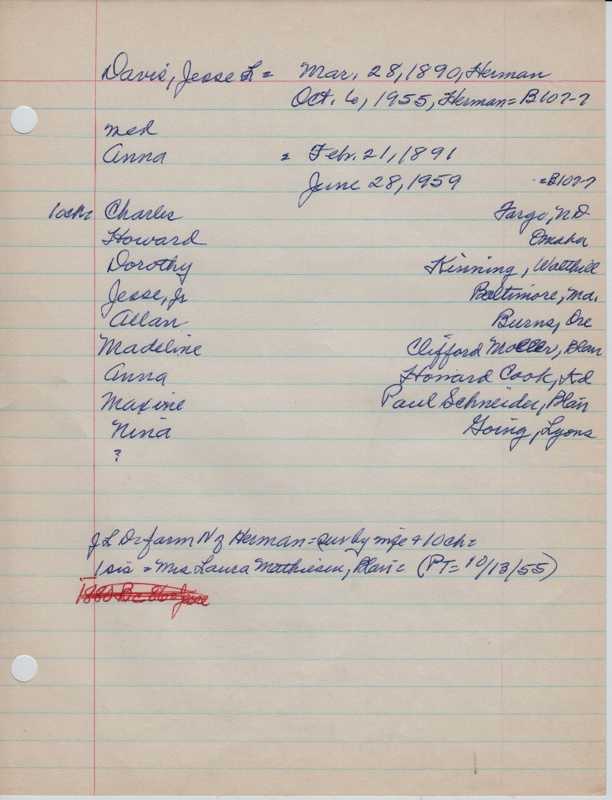 Davis, Jesse L = Mar. 28, 1890, Herman
Oct. 6, 1955, Herman = B107-7
med
Anna = Feb. 21, 1891
June 28, 1959 = B107-7
10ch= Charles Fargo, ND
Howard Omaha
Dorothy Kinning, Walthill
Jesse, Jr Baltimore, Md.
Allan Burns, Ore
Madeline Clifford Moeller, Blair
Anna Howard Cook, Ad
Maxine Paul Schneider, Blair
Nina Going, Lyons
?
JL D = farm N of Herman = sur by wife + 10ch =
1 sis = Mrs Laura Matthiesen, Blair = (PT = 10/13/55)
1880 Jesse